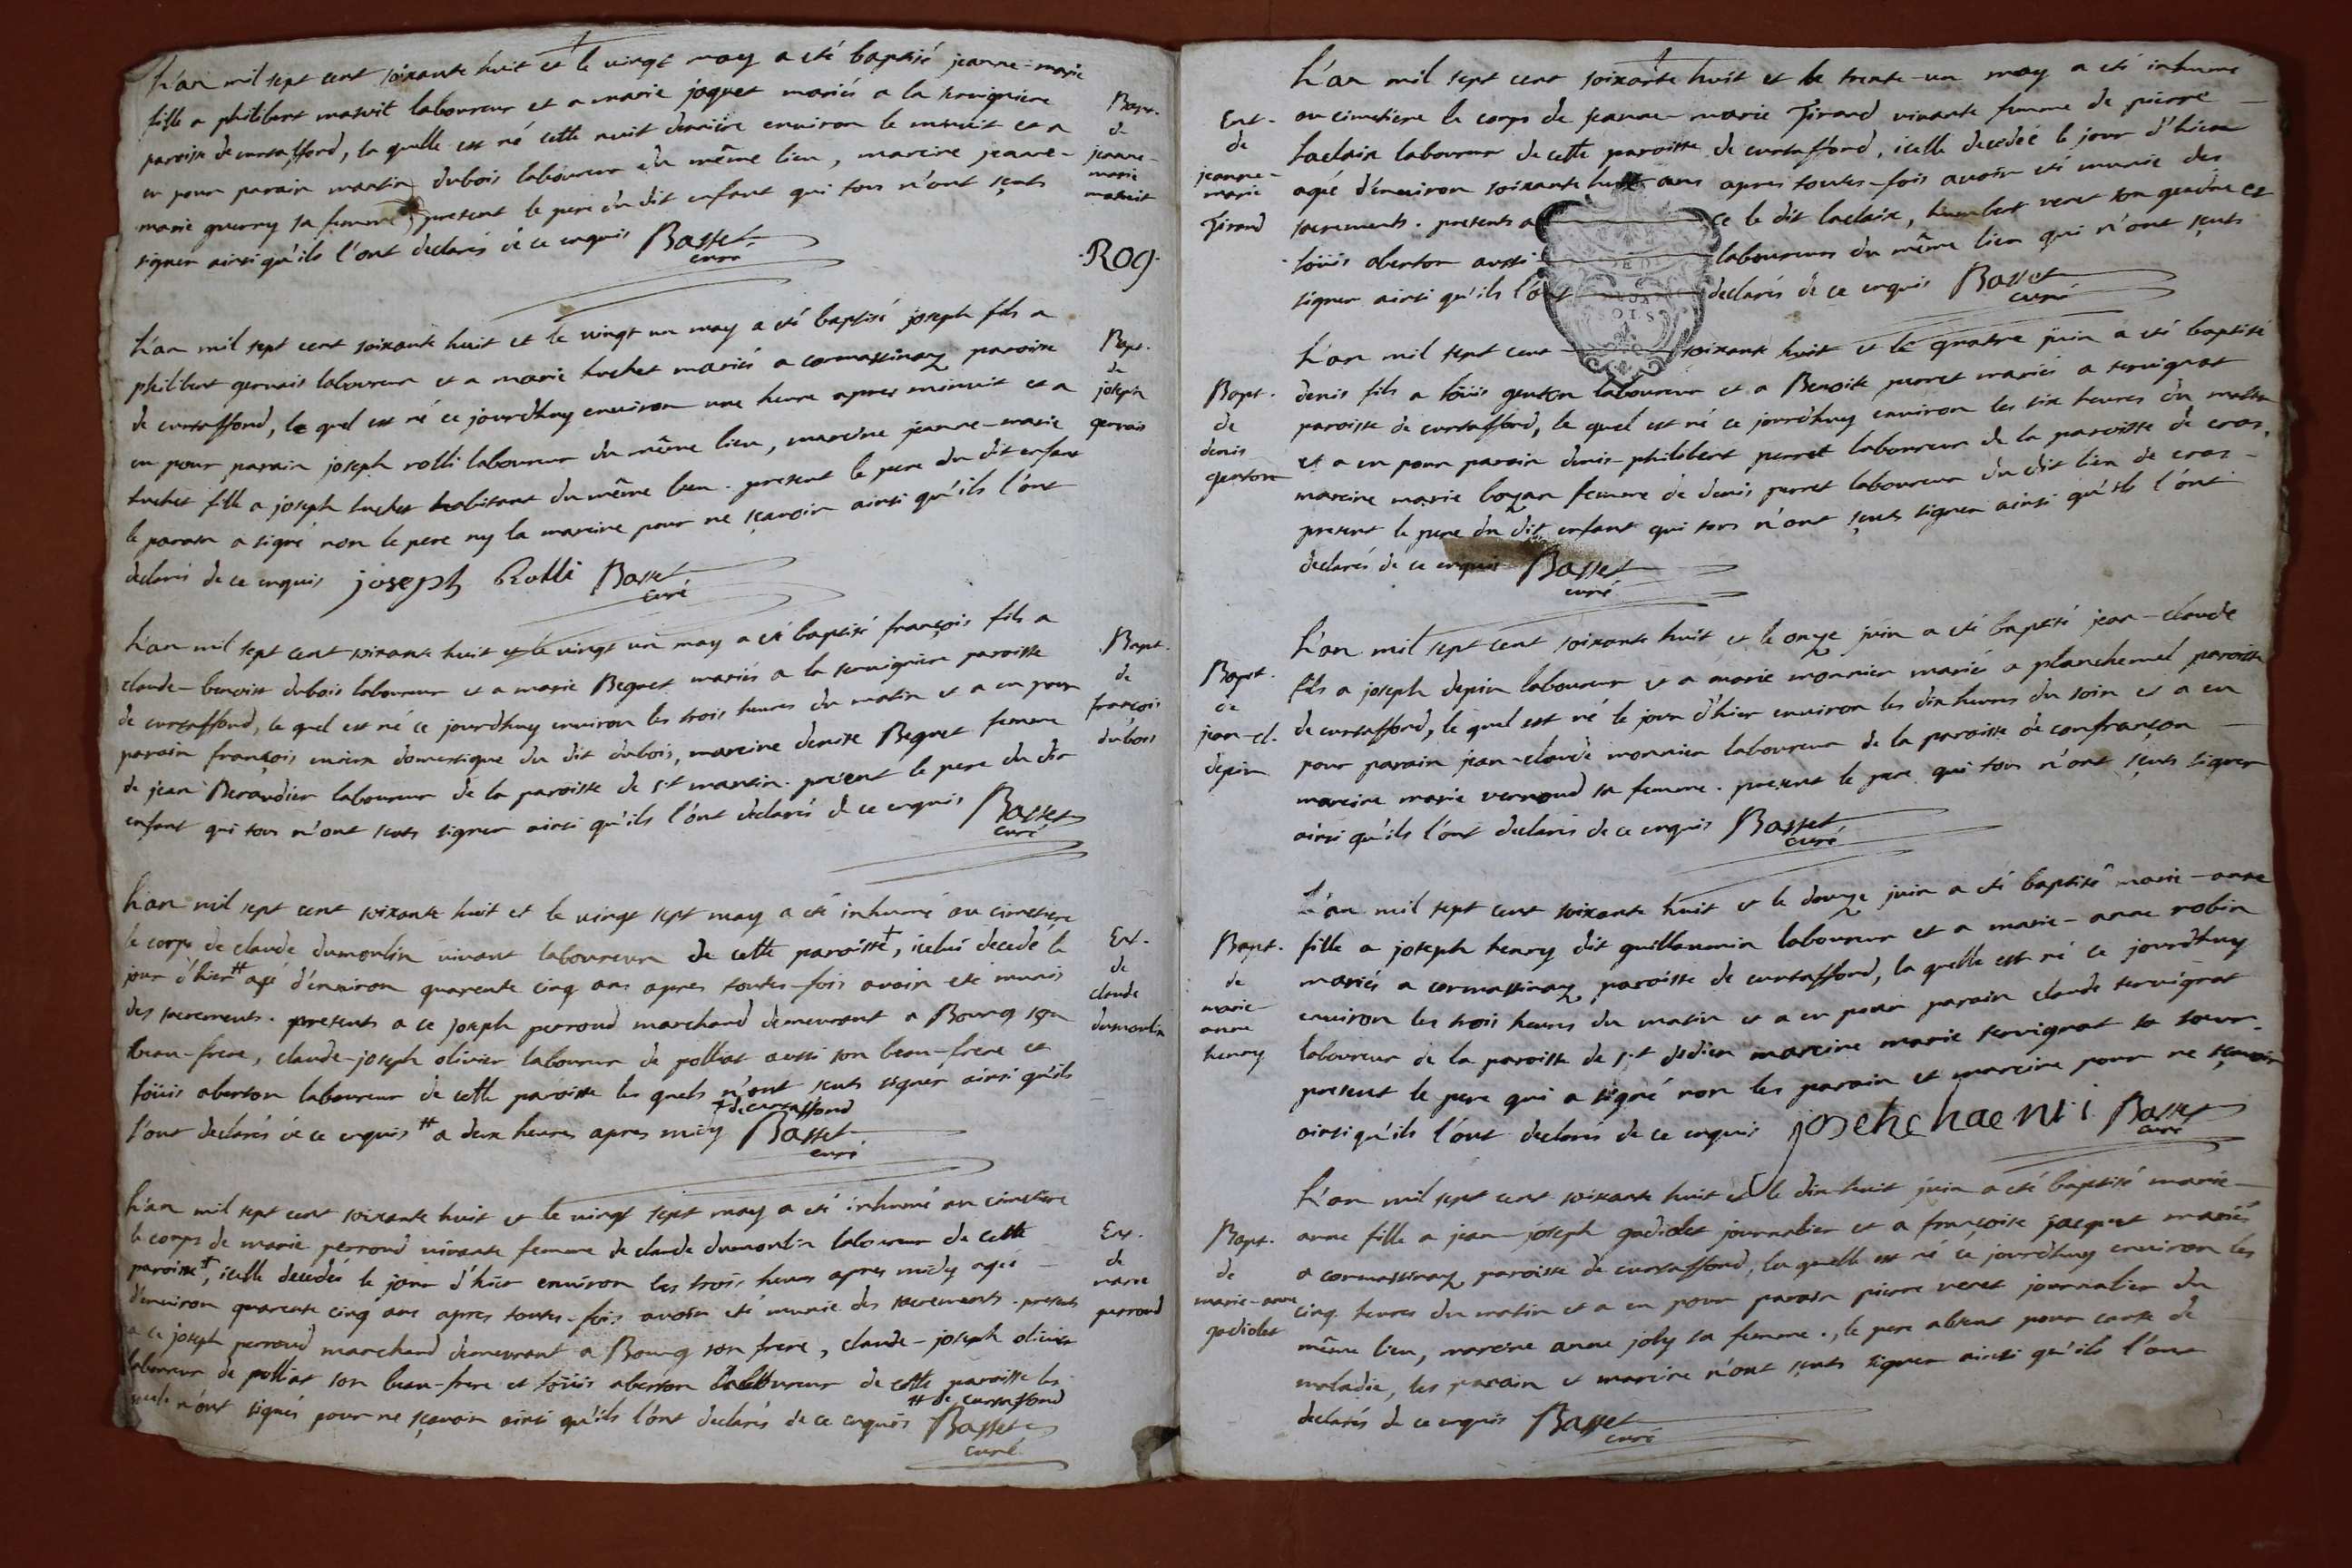 L'an mil sept cent soixante huit et le vingt may a eté baptisé jeanne-marie
fille a philibert masuit laboureur et a marie joquet mariés a la servignière
paroisse de curtaffond, la quelle est né cette nuit derrière environ le minuit et a
eu pour parain martin dubois laboureur du même lieu, mareine jeanne-
marie guerry sa femme, present le pere du dit enfant qui tous n'ont sçuts
signer ainsi qu'ils l'ont declarés de ce enquis Basset
curé
Bapt.
de
jeanne-
marie
masuit
L'an mil sept cent soixante huit et le vingt un may a eté baptisé joseph fils a
philibert gervais laboureur et a marie tuchet mariés a cormassinay paroisse
de curtaffond, le quel est né ce jourdhuy environ une heure apres minuit et a
eu pour parain joseph rolli laboureur du même lieu, mareine jeanne-marie
tuchet fille a joseph tuchet habitant du même lieu. present le pere du dit enfant
le parain a signé non le pere ny la mareine pour ne sçavoir ainsi qu'ils l'ont
declarés de ce enquis joseph Rolli Basset
curé
Bapt.
de
joseph
gervais
L'an mil sept cent soixante huit et le vingt un may a eté baptisé françois fils a
claude-benoist dubois laboureur et a marie Beguet mariés a la servignière paroisse
de curtaffond, le quel est né ce jourdhuy environ les trois heures du matin et a eu pour
parain françois domestique du dit dubois, mareine denise Beguet femme
de jean Beraudier laboureur de la paroisse de s.t martin. present le pere du dit
enfant qui tous n'ont sçuts signer ainsi qu'ils l'ont declarés de ce enquis Basset
curé
Bapt.
de
françois
dubois
L'an mil sept cent soixante huit et le vingt sept may a eté inhumé au cimetiere
le corps de claude dumoulin vivant laboureur de cette paroisse‡, icelui decedé le
jour d'hier # agé d'environ quarente cinq ans apres toutes-fois avoir eté munis
des sacrements. presents a ce joseph perroud marchand demeurant a Bourg son
beau-frere, claude-joseph olivier laboureur de polliat aussi son beau-frere et
loüis oberton laboureur de cette paroisse les quels n'ont sçuts signer ainsi qu'ils
‡ de curtaffond
l'ont declarés de ce enquis # a deux heures apres midy Basset
curé
Ent.
de
claude
dumoulin
L'an mil sept cent soixante huit et le vingt sept may a eté inhumé au cimetiere
le corps de marie perroud vivante femme de claude dumoulin laboureur de cette
paroisse‡, icelle decedée le jour d'hier environ les trois heures apres midy agée
d'environ quarente cinq ans apres toutes-fois avoir eté munie des sacrements. presents
a ce joseph perroud marchand demeurant a Bourg son frere, claude-joseph olivier
laboureur de polliat son beau-frere et loüis oberton laboureur de cette paroisse les
# de curtaffond
quels n'ont signés pour ne sçavoir ainsi qu'ils l'ont declarés de ce enquis Basset
curé
Ent.
de
marie
perroud
L'an mil sept cent soixante huit et le trente-un may a eté inhumé
au cimetiere le corps de jeanne-marie Tirand vivante femme de pierre
laclaix laboureur de cette paroisse de curtaffond, icelle decedée le jour d'hier
agée d'environ soixante huit ans apres toutes-fois avoir eté munie des
sacrements. presents a ce le dit laclaix, humbert veret son gendre et
loüis oberton aussi laboureurs du même lieu qui n'ont sçuts
signer ainsi qu'ils l'ont declarés de ce enquis Basset
curé
Ent.
de
jeanne-
marie
Tirand
L'an mil sept cent soixante huit et le quatre juin a eté baptisé
denis fils a loüis genton laboureur et a Benoite perret mariés a servignat
paroisse de curtaffond, le quel est né ce jourdhuy environ les six heures du matin
et a eu pour parain denis-philibert perret laboureur de la paroisse de cras,
mareine marie bozan femme de denis perret laboureur du dit lieu de cras-
present le pere du dit enfant qui tous n'ont sçuts signer ainsi qu'ils l'ont
declarés de ce enquis Basset
curé
Bapt.
de
denis
genton
L'an mil sept cent soixante huit et le onze juin a eté baptisé jean-claude
fils a joseph depin laboureur et a marie monnier mariés a planchemel paroisse
de curtaffond, le quel est né le jour d'hier environ les dix heures du soir et a eu
pour parain jean-claude monnier laboureur de la paroisse de confrançon
mareine marie vernoud sa femme. present le pere qui tous n'ont sçuts signer
ainsi qu'ils l'ont declarés de ce enquis Basset
curé
Bapt.
de
jean-cl.
depin
L'an mil sept cent soixante huit et le douze juin a eté baptisé marie-anne
fille a joseph henry dit guillaumin laboureur et a marie-anne robin
mariés a cormassinay paroisse de curtaffond, la quelle est né ce jourdhuy
environ les trois heures du matin et a eu pour parain claude servignat
laboureur de la paroisse de s.t didier mareine marie servignat sa soeur.
present le pere qui a signé non les parain et mareine pour ne sçavoir
ainsi qu'ils l'ont declarés de ce enquis josehc haenri Basset
curé
Bapt.
de
marie-
anne
henry
L'an mil sept cent soixante huit et le dix-huit juin a eté baptisé marie-
anne fille a jean-joseph gadiolet journalier et a françoise jacquet mariés
a cormassinay paroisse de curtaffond, la quelle est né ce jourdhuy environ les
cinq heures du matin et a eu pour parain pierre veret journalier du
même lieu, mareine anne joly sa femme., le pere absent pour cause de
maladie, les parain et mareine n'ont sçuts signer ainsi qu'ils l'ont
declarés de ce enquis Basset
curé
Bapt.
de
marie-anne
gadiolet